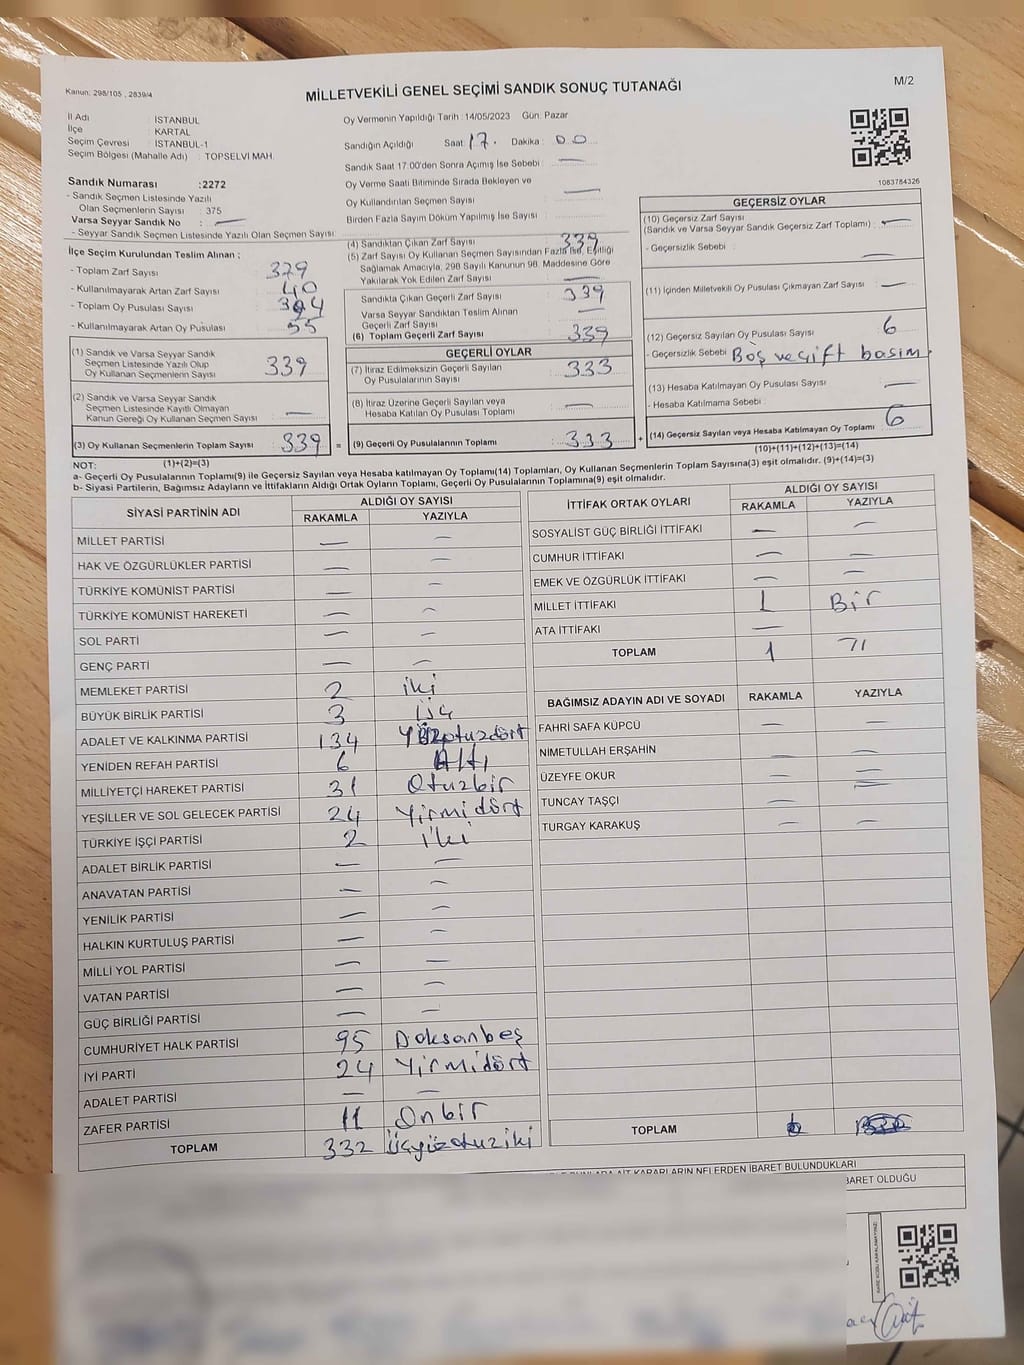 Kanun: 298/105 , 2839/4
MİLLETVEKİLİ GENEL SEÇİMİ SANDIK SONUÇ TUTANAĞI
M/2
İl Adı : İSTANBUL
İlçe : KARTAL
Seçim Çevresi : İSTANBUL-1
Seçim Bölgesi (Mahalle Adı) : TOPSELVİ MAH.
Oy Vermenin Yapıldığı Tarih : 14/05/2023 Gün: Pazar
Sandığın Açıldığı Saat: 17. Dakika : 00
Sandık Saat 17:00'den Sonra Açımış İse Sebebi : —
Oy Verme Saati Bitiminde Sırada Bekleyen ve
Oy Kullandırılan Seçmen Sayısı : —
Birden Fazla Sayım Döküm Yapılmış İse Sayısı :
1083784326
Sandık Numarası :2272
- Sandık Seçmen Listesinde Yazılı
Olan Seçmenlerin Sayısı : 375
Varsa Seyyar Sandık No : —
- Seyyar Sandık Seçmen Listesinde Yazılı Olan Seçmen Sayısı:
İlçe Seçim Kurulundan Teslim Alınan ;
- Toplam Zarf Sayısı : 379
- Kullanılmayarak Artan Zarf Sayısı : 40
- Toplam Oy Pusulası Sayısı : 394
- Kullanılmayarak Artan Oy Pusulası : 55
(1) Sandık ve Varsa Seyyar Sandık
Seçmen Listesinde Yazılı Olup
Oy Kullanan Seçmenlerin Sayısı : 339
(2) Sandık ve Varsa Seyyar Sandık
Seçmen Listesinde Kayıtlı Olmayan
Kanun Gereği Oy Kullanan Seçmen Sayısı : —
(3) Oy Kullanan Seçmenlerin Toplam Sayısı : 339 =
(1)+(2)=(3)
(4) Sandıktan Çıkan Zarf Sayısı : 339
(5) Zarf Sayısı Oy Kullanan Seçmen Sayısından Fazla İse, Eşitliği
Sağlamak Amacıyla, 298 Sayılı Kanunun 98. Maddesine Göre
Yakılarak Yok Edilen Zarf Sayısı : —
Sandıkta Çıkan Geçerli Zarf Sayısı : 339
Varsa Seyyar Sandıktan Teslim Alınan
Geçerli Zarf Sayısı : —
(6) Toplam Geçerli Zarf Sayısı : 339
GEÇERLİ OYLAR
(7) İtiraz Edilmeksizin Geçerli Sayılan
Oy Pusulalarının Sayısı : 333
(8) İtiraz Üzerine Geçerli Sayılan veya
Hesaba Katılan Oy Pusulası Toplamı : —
(9) Geçerli Oy Pusulalarının Toplamı : 333 +
GEÇERSİZ OYLAR
(10) Geçersiz Zarf Sayısı
(Sandık ve Varsa Seyyar Sandık Geçersiz Zarf Toplamı) : —
- Geçersizlik Sebebi :
(11) İçinden Milletvekili Oy Pusulası Çıkmayan Zarf Sayısı : —
(12) Geçersiz Sayılan Oy Pusulası Sayısı : 6
- Geçersizlik Sebebi : Boş ve çift basım
(13) Hesaba Katılmayan Oy Pusulası Sayısı : —
- Hesaba Katılmama Sebebi :
(14) Geçersiz Sayılan veya Hesaba Katılmayan Oy Toplamı : 6
(10)+(11)+(12)+(13)=(14)
NOT:
a- Geçerli Oy Pusulalarının Toplamı(9) ile Geçersiz Sayılan veya Hesaba katılmayan Oy Toplamı(14) Toplamları, Oy Kullanan Seçmenlerin Toplam Sayısına(3) eşit olmalıdır. (9)+(14)=(3)
b- Siyasi Partilerin, Bağımsız Adayların ve İttifakların Aldığı Oyların Toplamı, Geçerli Oy Pusulalarının Toplamına(9) eşit olmalıdır.
SİYASİ PARTİNİN ADI ALDIĞI OY SAYISI
RAKAMLA YAZIYLA
MİLLET PARTİSİ — —
HAK VE ÖZGÜRLÜKLER PARTİSİ — —
TÜRKİYE KOMÜNİST PARTİSİ — —
TÜRKİYE KOMÜNİST HAREKETİ — —
SOL PARTİ — —
GENÇ PARTİ — —
MEMLEKET PARTİSİ 2 iki
BÜYÜK BİRLİK PARTİSİ 3 üç
ADALET VE KALKINMA PARTİSİ 134 Yüzotuzdört
YENİDEN REFAH PARTİSİ 6 Altı
MİLLİYETÇİ HAREKET PARTİSİ 31 Otuzbir
YEŞİLLER VE SOL GELECEK PARTİSİ 24 Yirmidört
TÜRKİYE İŞÇİ PARTİSİ 2 iki
ADALET BİRLİK PARTİSİ — —
ANAVATAN PARTİSİ — —
YENİLİK PARTİSİ — —
HALKIN KURTULUŞ PARTİSİ — —
MİLLİ YOL PARTİSİ — —
VATAN PARTİSİ — —
GÜÇ BİRLİĞİ PARTİSİ — —
CUMHURİYET HALK PARTİSİ 95 Doksanbeş
İYİ PARTİ 24 Yirmidört
ADALET PARTİSİ — —
ZAFER PARTİSİ 11 Onbir
TOPLAM 332 Üçyüzotuziki
İTTİFAK ORTAK OYLARI ALDIĞI OY SAYISI
RAKAMLA YAZIYLA
SOSYALİST GÜÇ BİRLİĞİ İTTİFAKI — —
CUMHUR İTTİFAKI — —
EMEK VE ÖZGÜRLÜK İTTİFAKI — —
MİLLET İTTİFAKI 1 Bir
ATA İTTİFAKI —
TOPLAM 1
BAĞIMSIZ ADAYIN ADI VE SOYADI RAKAMLA YAZIYLA
FAHRİ SAFA KÜPCÜ — —
NİMETULLAH ERŞAHİN — —
ÜZEYFE OKUR — —
TUNCAY TAŞÇİ — —
TURGAY KARAKUŞ — —
TOPLAM
KARARLARIN NELERDEN İBARET BULUNDUKLARI
BARET OLDUĞU